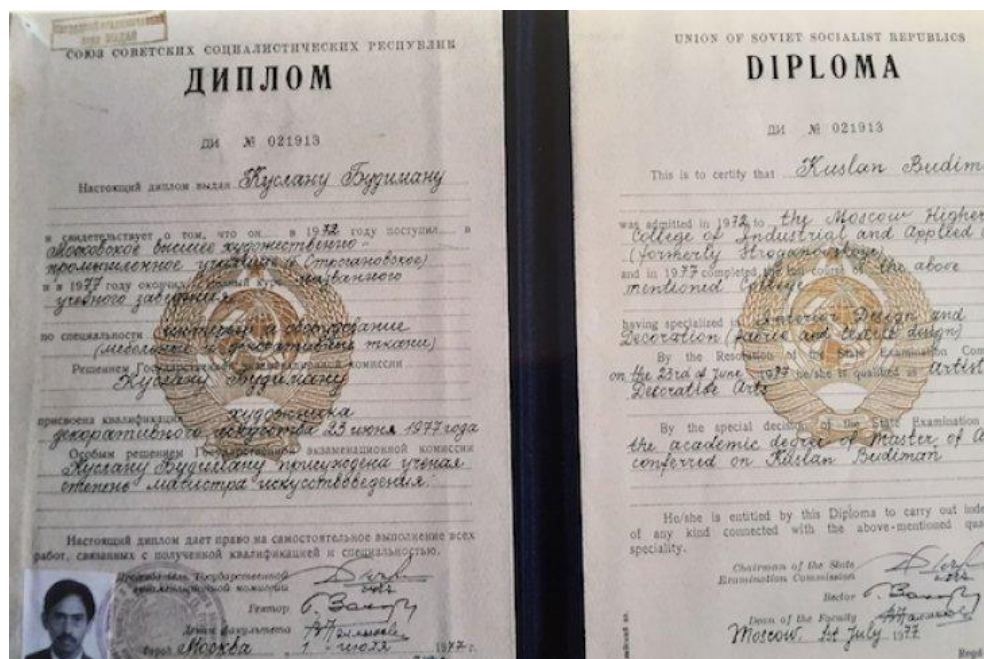 СОЮЗ СОВЕТСКИХ СОЦИАЛИСТИЧЕСКИХ РЕСПУБЛИК
ДИПЛОМ
ДИ № 021913
Настоящий диплом выдан Куслану Будиману
и свидетельствует о том, что он в 1972 году поступил в
Московское высшее художественно-
промышленное училище (б. Строгановское)
и в 1977 году окончил полный курс названного
учебного заведения
по специальности интерьер и оборудование
(мебельные и декоративные ткани)
Решением Государственной экзаменационной комиссии
Куслану Будиману
присвоена квалификация художника
декоративного искусства 23 июня 1977 года
Особым решением Государственной экзаменационной комиссии
Куслану Будиману присуждена учёная
степень магистра искусствоведения.
Настоящий диплом дает право на самостоятельное выполнение всех
работ, связанных с полученной квалификацией и специальностью.
Председатель Государственной
экзаменационной комиссии
Ректор
Декан факультета
Город Москва 1 июля 1977 г.
UNION OF SOVIET SOCIALIST REPUBLICS
DIPLOMA
ДИ № 021913
This is to certify that Kuslan Budim
was admitted in 1972 to the Moscow Higher
College of Industrial and Applied
(formerly Stroganovskoye)
and in 1977 completed the full course of the above
mentioned College
having specialized in Interior Design and
Decoration (fabric and textile design)
By the Resolution of the State Examination Com
on the 23rd of June 1977 he/she is qualified as Artist
Decorative Arts
By the special decision of the State Examination
the academic degree of Master of A
conferred on Kuslan Budiman
He/she is entitled by this Diploma to carry out inde
of any kind connected with the above-mentioned qua
speciality.
Chairman of the State
Examination Commission
Rector
Dean of the Faculty
Moscow. 1st July 1977
Regd